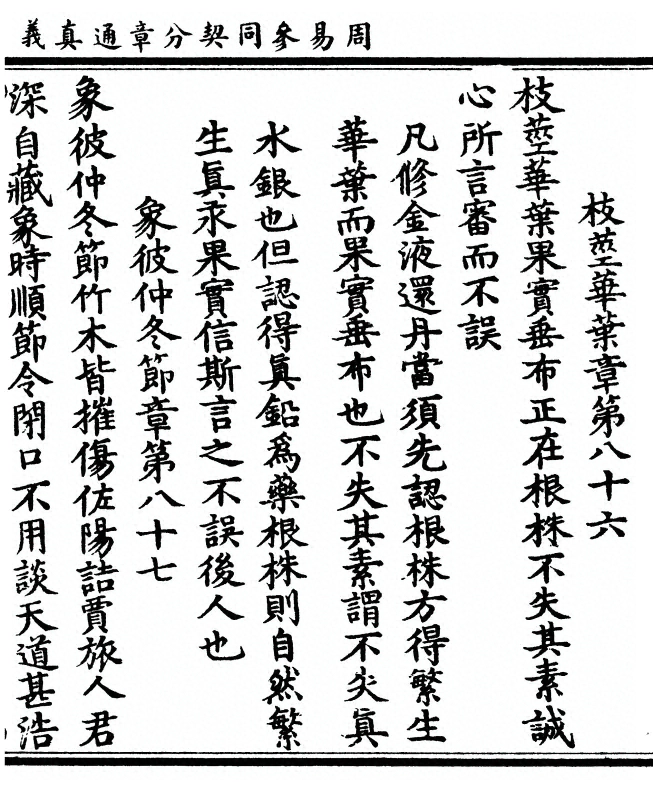 周易參同契分章通真義
枝莖華葉章第八十六
枝莖華葉果實垂布正在根株不失其素誠
心所言審而不誤
凡修金液還丹當須先認根株方得繁生
華葉而果實垂布也不失其素謂不失眞
水銀也但認得眞鉛爲藥根株則自然繁
生眞汞果實信斯言之不誤後人也
象彼仲冬節章第八十七
象彼仲冬節竹木皆摧傷佐陽詰賈旅人君
深自藏象時順節令閉口不用談天道甚浩